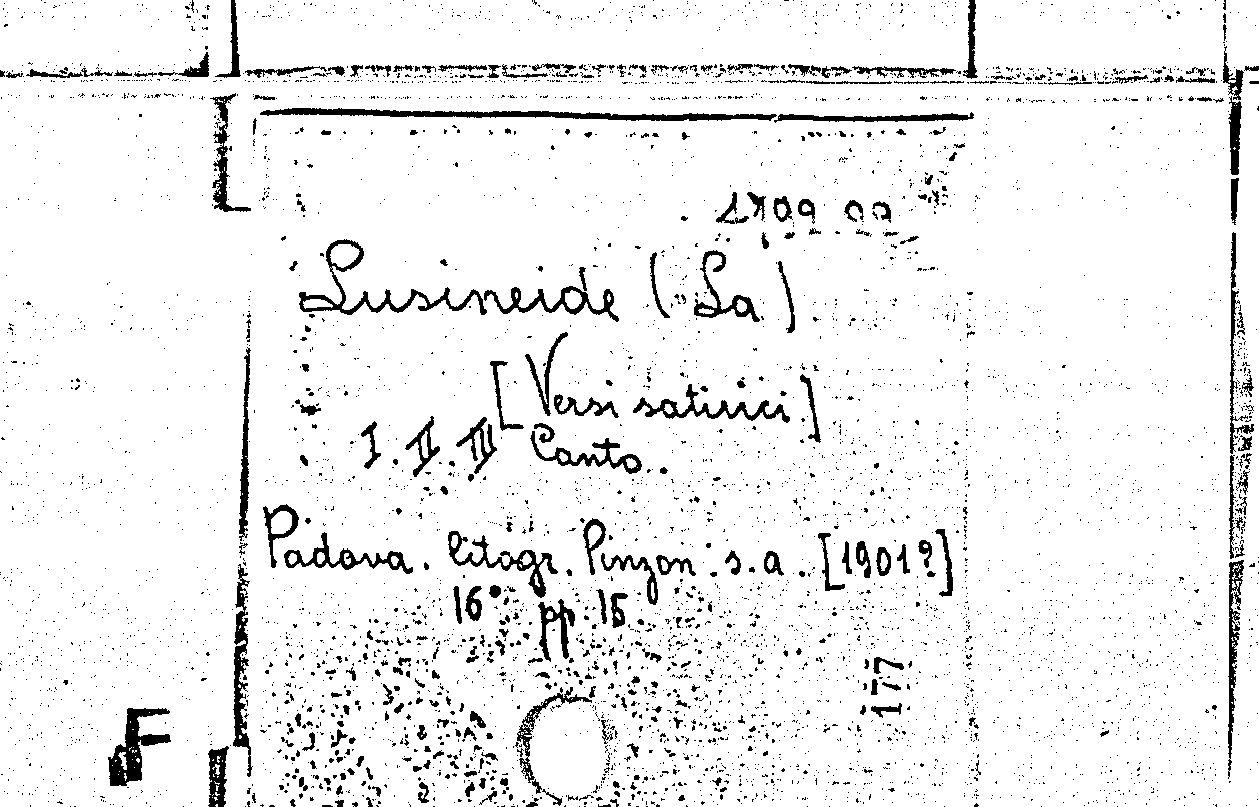 Lusineide (La)
[Versi satirici]
I. II. III Canto.
Padova. litogr. Pinzon. s. a. [1901?]
16° pp. 15.
177
F